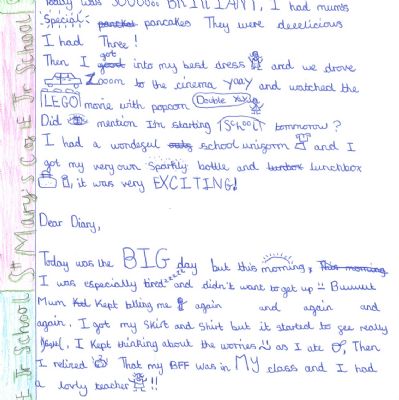 Today was SOOOooo BRILLIANT, I had mums
Special pancakes They were deeelicious
I had Three!
Then I got into my best dress and we drove
Zoom to the cinema yaay and watched the
LEGO movie with popcorn Double
Did I mention I'm starting School tommorow?
I had a wondeful school unigorm and I
got my very own Sparkly bottle and lunchbox
, it was very EXCITING!
Dear Diary,
Today was the BIG day but this morning, This morning
I was especially tired zzzz and didn't want to get up Buuuut
Mum kept telling me again and again and
again. I got my skirt and shirt but it started to gee really
, I kept thinking about the worries as I ate , Then
I relized That my BFF was in My class and I had
a lovly teacher !!
St Mary's C of E Jr School
E Jr School